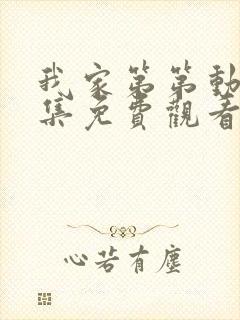 我家第第動
集免費觀看
心若有塵